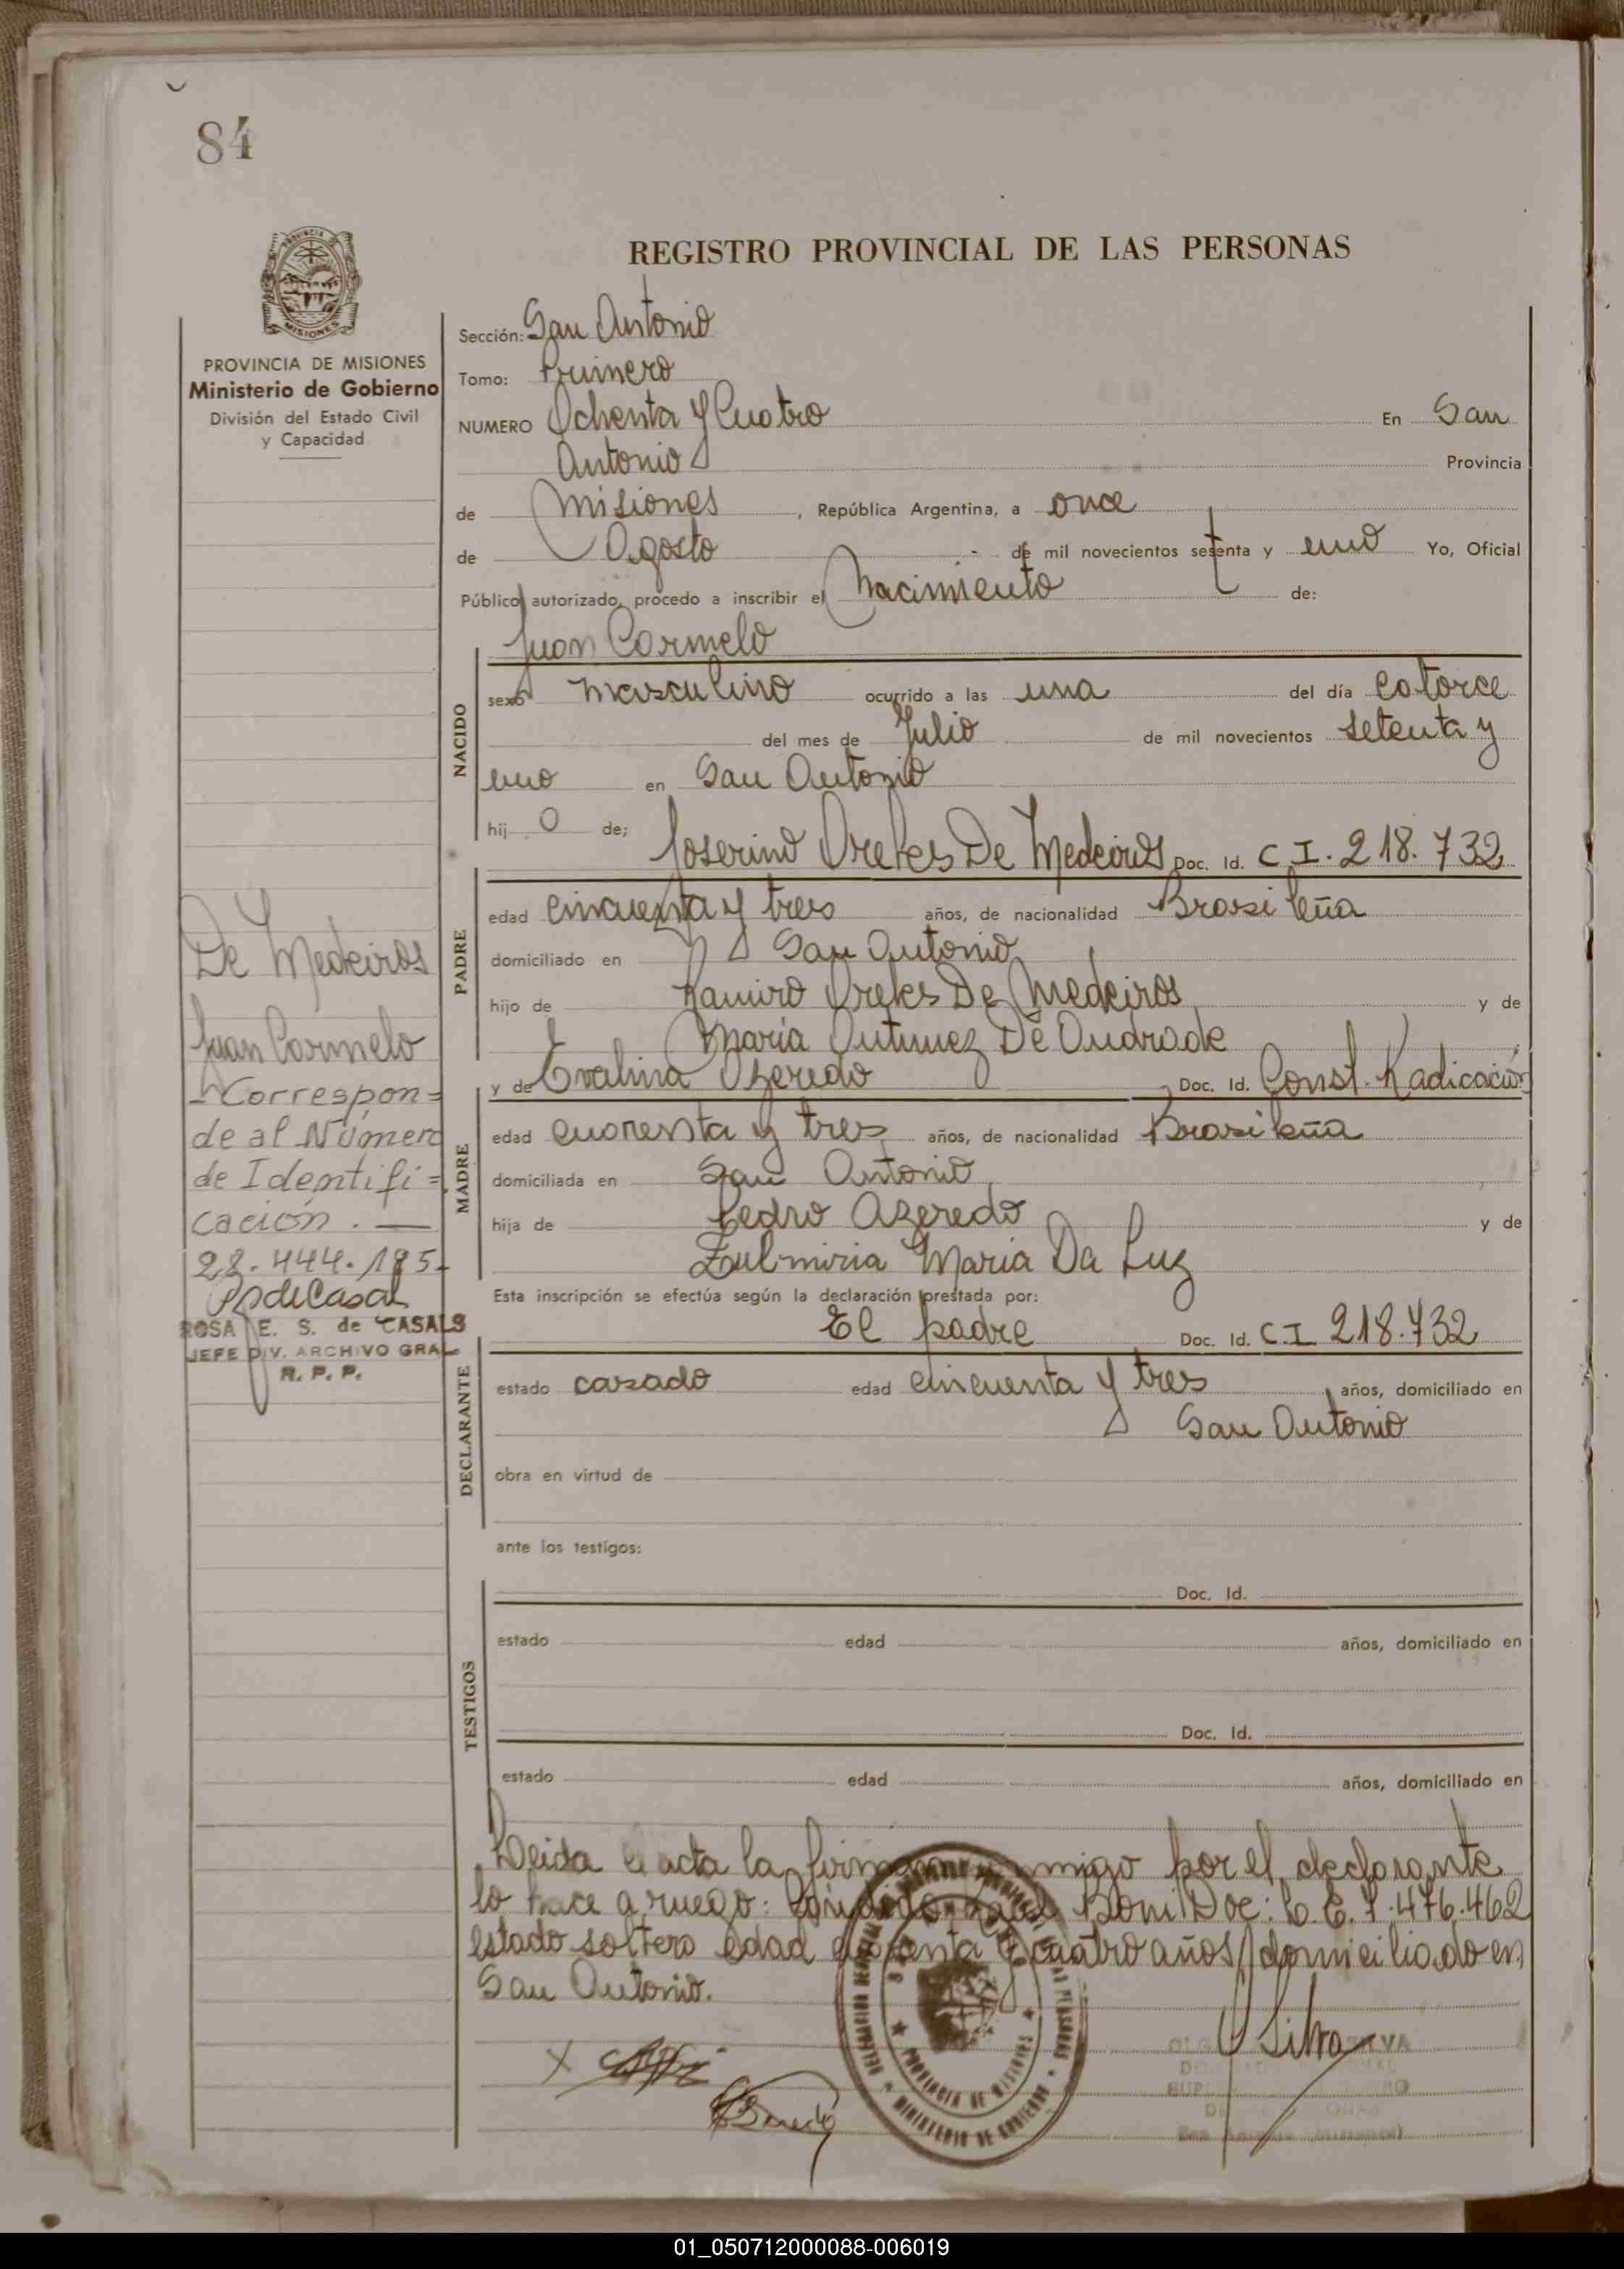 84
REGISTRO PROVINCIAL DE LAS PERSONAS
PROVINCIA DE MISIONES
Ministerio de Gobierno
División del Estado Civil
y Capacidad
Sección: San Antonio
Tomo: Primero
NUMERO Ochenta y Cuatro En San
Antonio Provincia
de Misiones, República Argentina, a once
de Agosto de mil novecientos setenta y uno Yo, Oficial
Público autorizado, procedo a inscribir el Nacimiento de:
Juan Carmelo
NACIDO
sexo masculino ocurrido a las una del día catorce
del mes de Julio de mil novecientos setenta y
uno en San Antonio
hij o de; Joserino De Medeiros Doc. Id. C.I. 218.732
PADRE
edad cincuenta y tres años, de nacionalidad Brasileña
domiciliado en San Antonio
hijo de Ramiro De Medeiros y de
Maria De Andrade
y de Evalina Azeredo Doc. Id. Const. Radicación
MADRE
edad cuarenta y tres años, de nacionalidad Brasileña
domiciliada en San Antonio
hija de Pedro Azeredo y de
Zulmiria Maria Da Luz
Esta inscripción se efectúa según la declaración prestada por:
El padre Doc. Id. C.I 218.732
DECLARANTE
estado casado edad cincuenta y tres años, domiciliado en
San Antonio
obra en virtud de
ante los testigos:
Doc. Id.
TESTIGOS
estado edad años, domiciliado en
Doc. Id.
estado edad años, domiciliado en
Leida el acta la firma conmigo por el declarante
lo hace a ruego: Boni Doc: 476.462
estado soltero edad y cuatro años domiciliado en
San Antonio.
De Medeiros
Juan Carmelo
Correspon=
de al Número
de Identifi=
cación. —
22.444.195-
ROSA E. S. de CASALS
JEFE DIV. ARCHIVO GRAL
R. P. P.
X
Silva
PROVINCIA DE MISIONES
MINISTERIO DE GOBIERNO
01_050712000088-006019